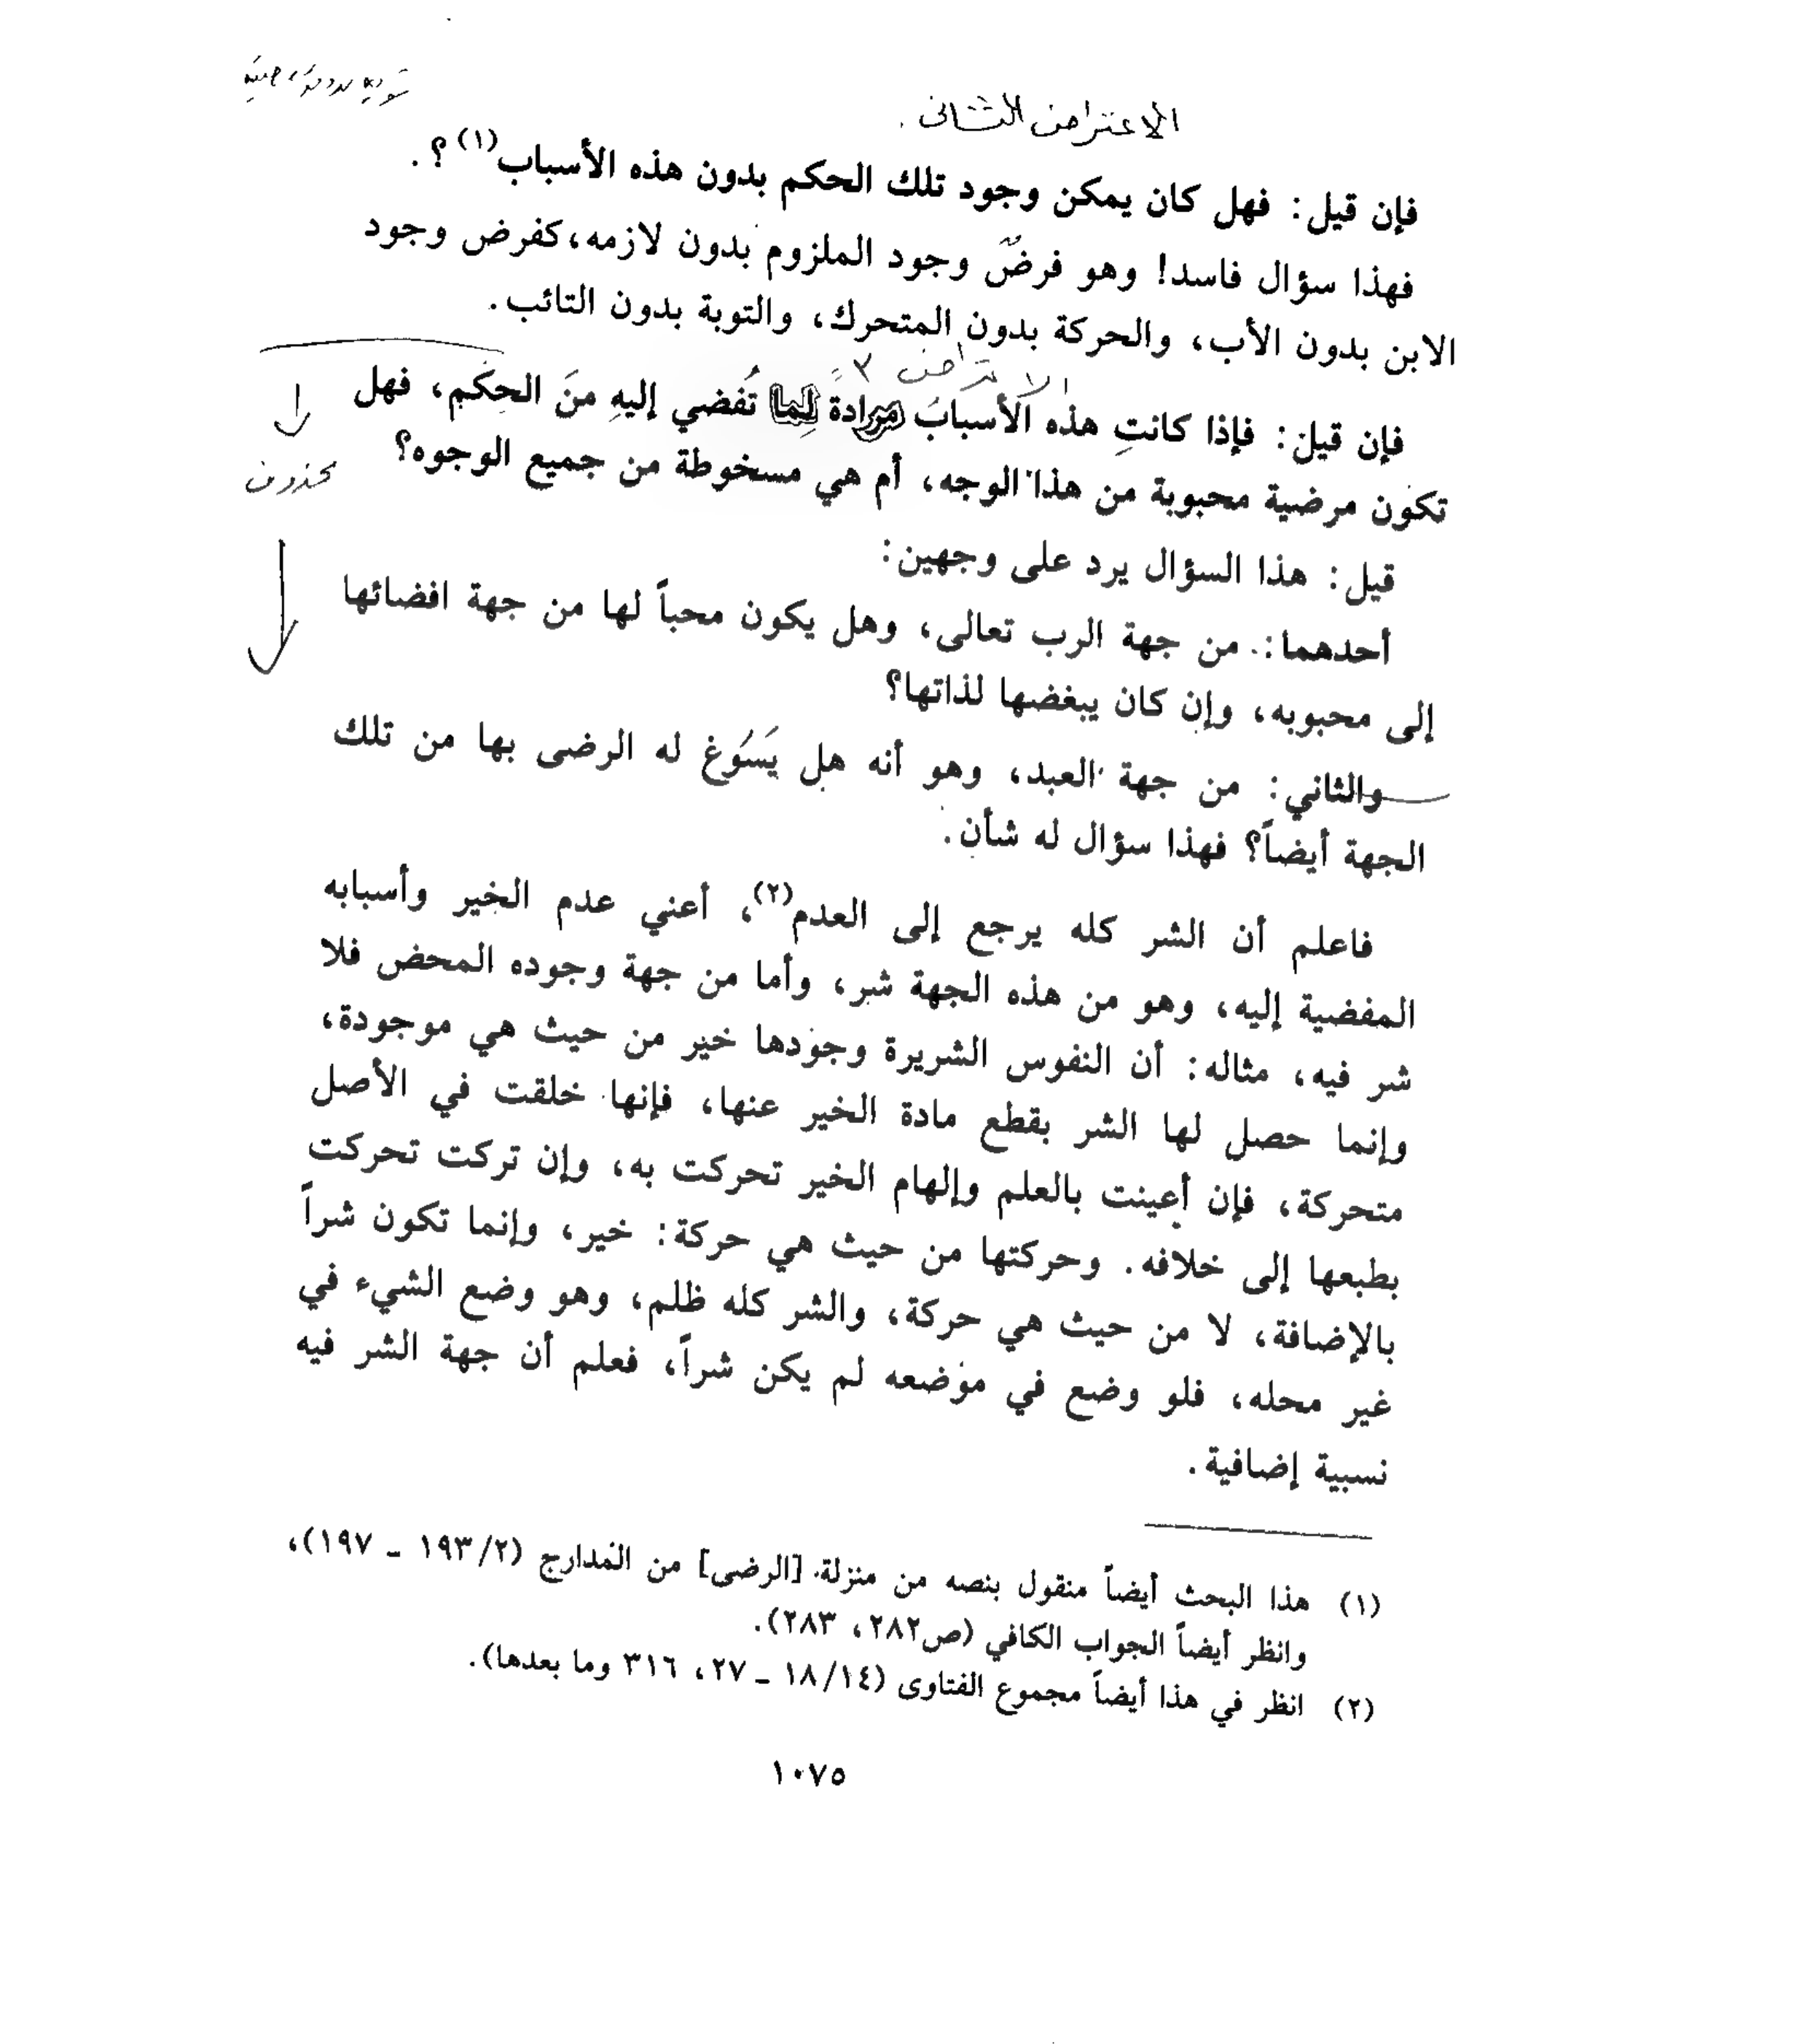 الاعتراض الثاني.
فإن قيل: فهل كان يمكن وجود تلك الحكم بدون هذه الأسباب(١)؟.
فهذا سؤال فاسد! وهو فرضٌ وجود الملزوم بدون لازمه، كفرض وجود
الابن بدون الأب، والحركة بدون المتحرك، والتوبة بدون التائب.
الاعتراض ٣
فإن قيل: فإذا كانتِ هذه الأسبابُ مرادةً لِما تُفضي إليهِ منَ الحِكَم، فهل
تكون مرضية محبوبة من هذا الوجه، أم هي مسخوطة من جميع الوجوه؟
محذوف
قيل: هذا السؤال يرد على وجهين:
أحدهما: من جهة الرب تعالى، وهل يكون محباً لها من جهة افضائها
إلى محبوبه، وإن كان يبغضها لذاتها؟
والثاني: من جهة العبد، وهو أنه هل يَسَوغ له الرضى بها من تلك
الجهة أيضاً؟ فهذا سؤال له شأن.
فاعلم أن الشر كله يرجع إلى العدم(٢)، أعني عدم الخير وأسبابه
المفضية إليه، وهو من هذه الجهة شر، وأما من جهة وجوده المحض فلا
شر فيه، مثاله: أن النفوس الشريرة وجودها خير من حيث هي موجودة،
وإنما حصل لها الشر بقطع مادة الخير عنها، فإنها خلقت في الأصل
متحركة، فإن أعينت بالعلم وإلهام الخير تحركت به، وإن تركت تحركت
بطبعها إلى خلافه. وحركتها من حيث هي حركة: خير، وإنما تكون شراً
بالإضافة، لا من حيث هي حركة، والشر كله ظلم، وهو وضع الشيء في
غير محله، فلو وضع في موضعه لم يكن شراً، فعلم أن جهة الشر فيه
نسبية إضافية.
(١) هذا البحث أيضاً منقول بنصه من منزلة [الرضى] من المدارج (١٩٣/٢ - ١٩٧)،
وانظر أيضاً الجواب الكافي (ص٢٨٢، ٢٨٣).
(٢) انظر في هذا أيضاً مجموع الفتاوى (١٨/١٤ - ٢٧، ٣١٦ وما بعدها).
١٠٧٥